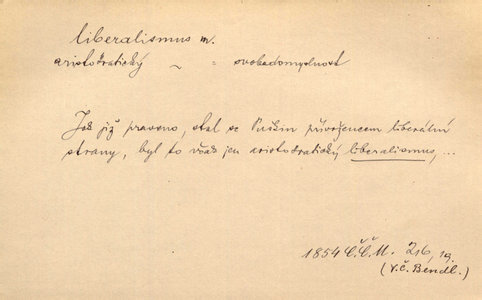 liberalismus m.
aristokratický ~ = svobodomyslnost
Jak již praveno, stal se Puškin přívržencem liberální
strany, byl to však jen aristokratický liberalismus, ...
1854 Č.Č.M. 216, 19.
(V.Č. Bendl.)